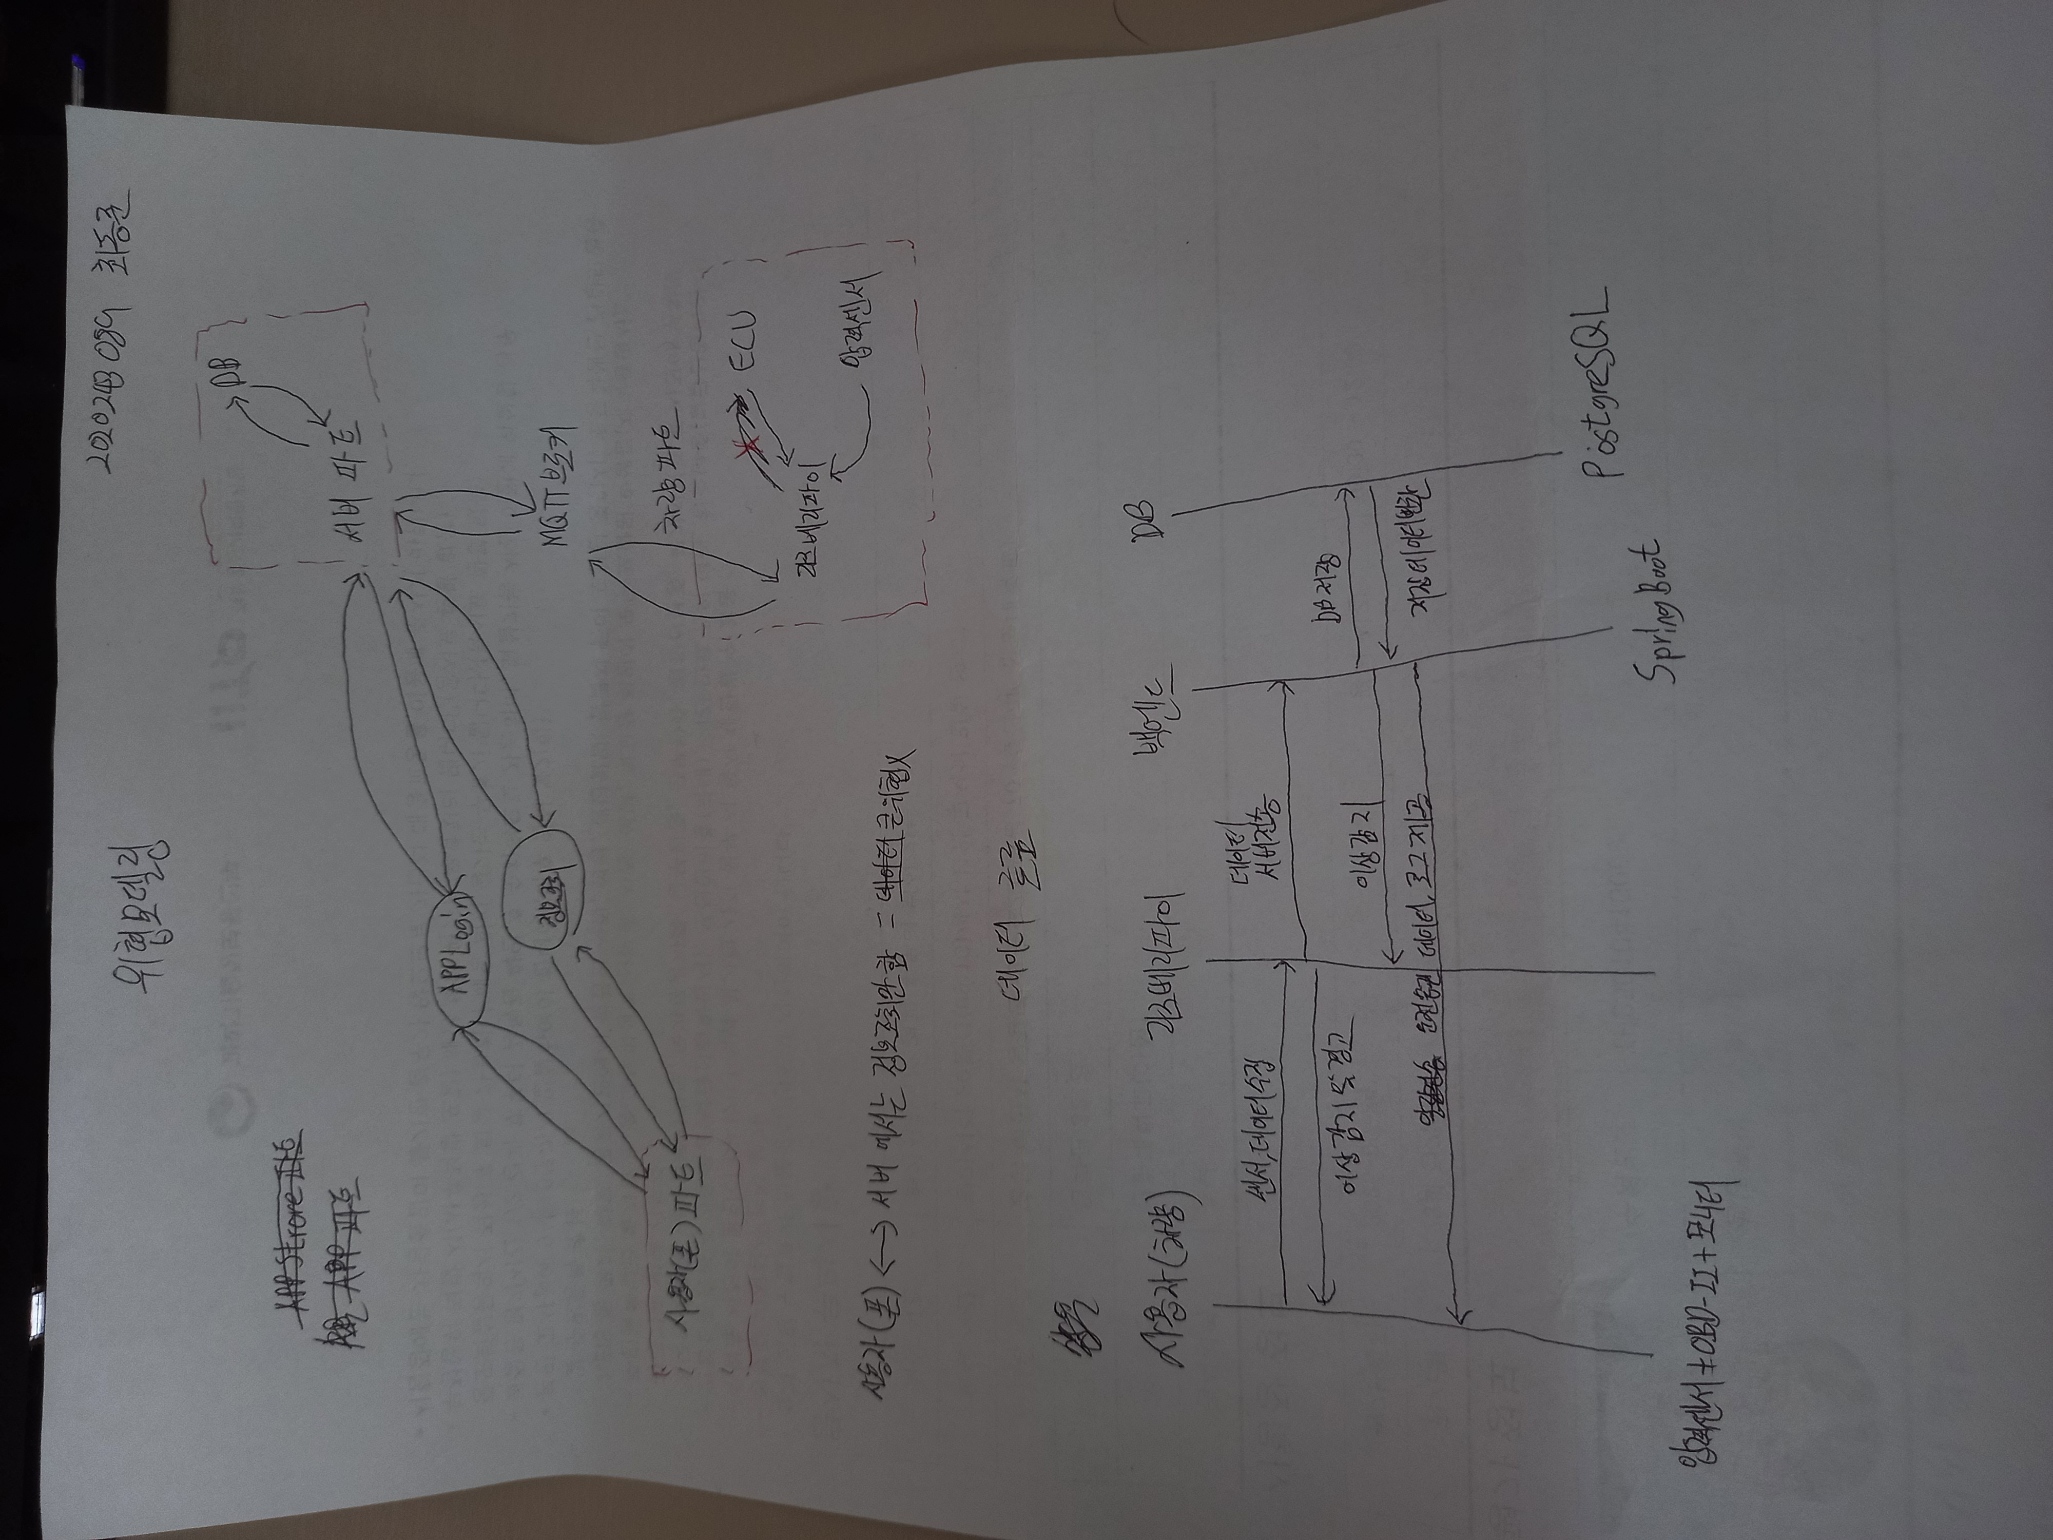 2020243089 최동준
위협모델링
APPStrore 파트
APP 파트
DB
서버 파트
APPLogin
정보조회
MQTT브로커
사용자(폰)파트
차량파트
ECU
라즈베리파이
압력센서
사용자(폰) <-> 서버 에서는 정보조회만 함 = 데이터 큰위협X
데이터 흐름
사용자(차량) 라즈베리파이 백엔드 DB
센서,데이터수집
데이터
서버전송
이상감지 및 경고
DB저장
이상감지
저장데이터반환
운전습관 데이터, 로그 제공
PostgreSQL
SpringBoot
압력센서+OBD-II+모니터